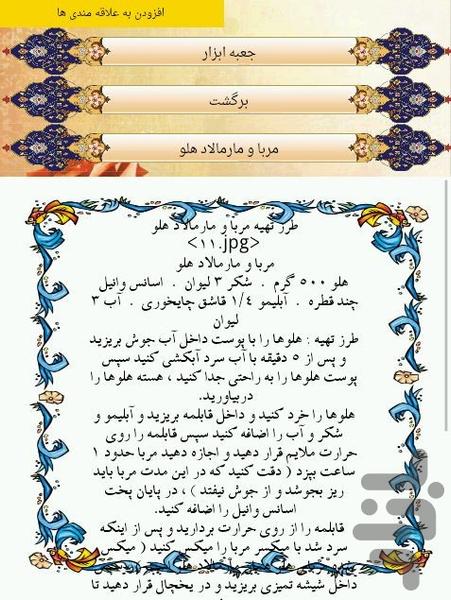 افزودن به علاقه مندی ها
جعبه ابزار
برگشت
مربا و مارمالاد هلو
طرز تهیه مربا و مارمالاد هلو
<۱۱.jpg>
مربا و مارمالاد هلو
هلو ۵۰۰ گرم . شکر ۳ لیوان . اسانس وانیل
چند قطره . آبلیمو ۱/۴ قاشق چایخوری . آب ۳
لیوان
طرز تهیه : هلوها را با پوست داخل آب جوش بریزید
و پس از ۵ دقیقه با آب سرد آبکشی کنید سپس
پوست هلوها را به راحتی جدا کنید ، هسته هلوها را
دربیاورید.
هلوها را خرد کنید و داخل قابلمه بریزید و آبلیمو و
شکر و آب را اضافه کنید سپس قابلمه را روی
حرارت ملایم قرار دهید و اجازه دهید مربا حدود ۱
ساعت بپزد ( دقت کنید که در این مدت مربا باید
ریز بجوشد و از جوش نیفتد ) ، در پایان پخت
اسانس وانیل را اضافه کنید.
قابلمه را از روی حرارت بردارید و پس از اینکه
سرد شد با میکسر مربا را میکس کنید ( میکس
داخل شیشه تمیزی بریزید و در یخچال قرار دهید تا